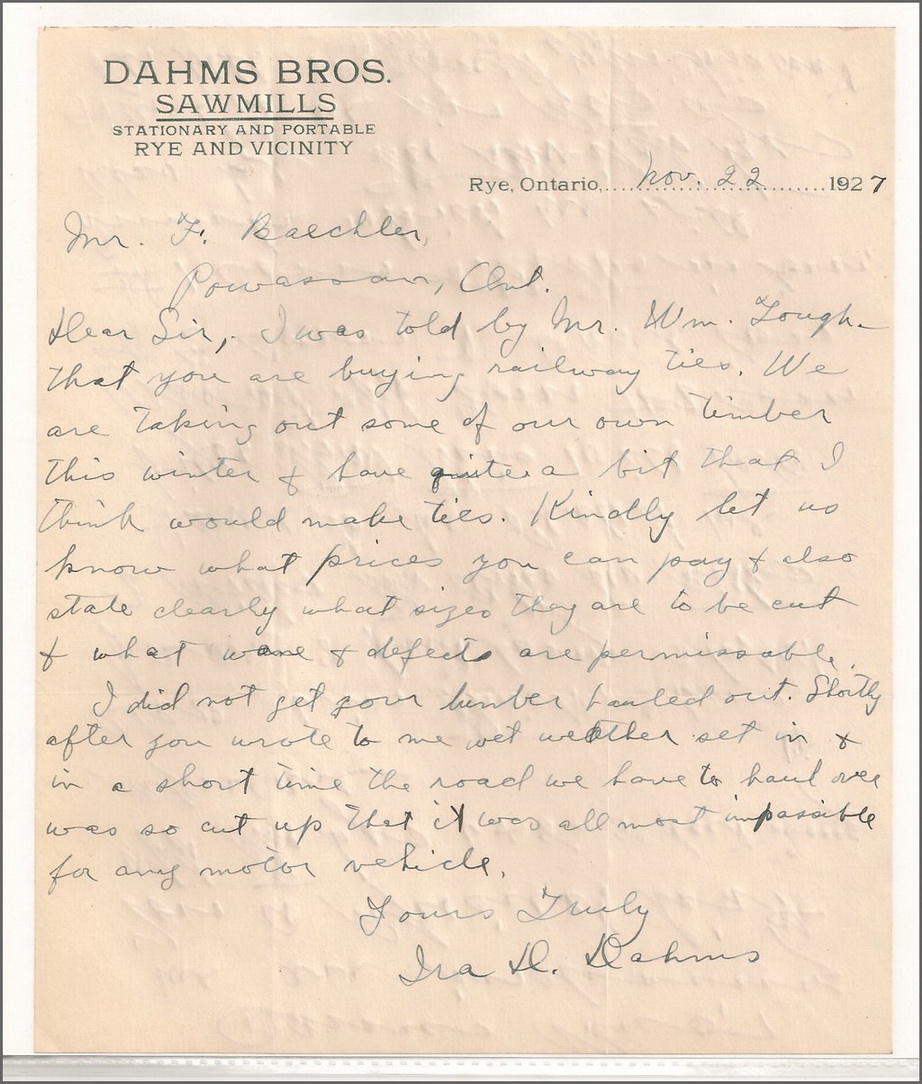 DAHMS BROS.
SAWMILLS
STATIONARY AND PORTABLE
RYE AND VICINITY
Rye, Ontario, Nov. 22 1927
Mr. F. Baechler,
Powassan, Ont.
Dear Sir, I was told by Mr. Wm. Tough
that you are buying railway ties. We
are taking out some of our own timber
this winter & have quite a bit that I
think would make ties. Kindly let us
know what prices you can pay & also
state clearly what sizes they are to be cut
& what wane & defects are permissable.
I did not get your lumber hauled out. Shortly
after you wrote to me wet weather set in &
in a short time the road we have to haul over
was so cut up that it was allmost impassible
for any motor vehicle.
Yours Truly
Ira D. Dahms